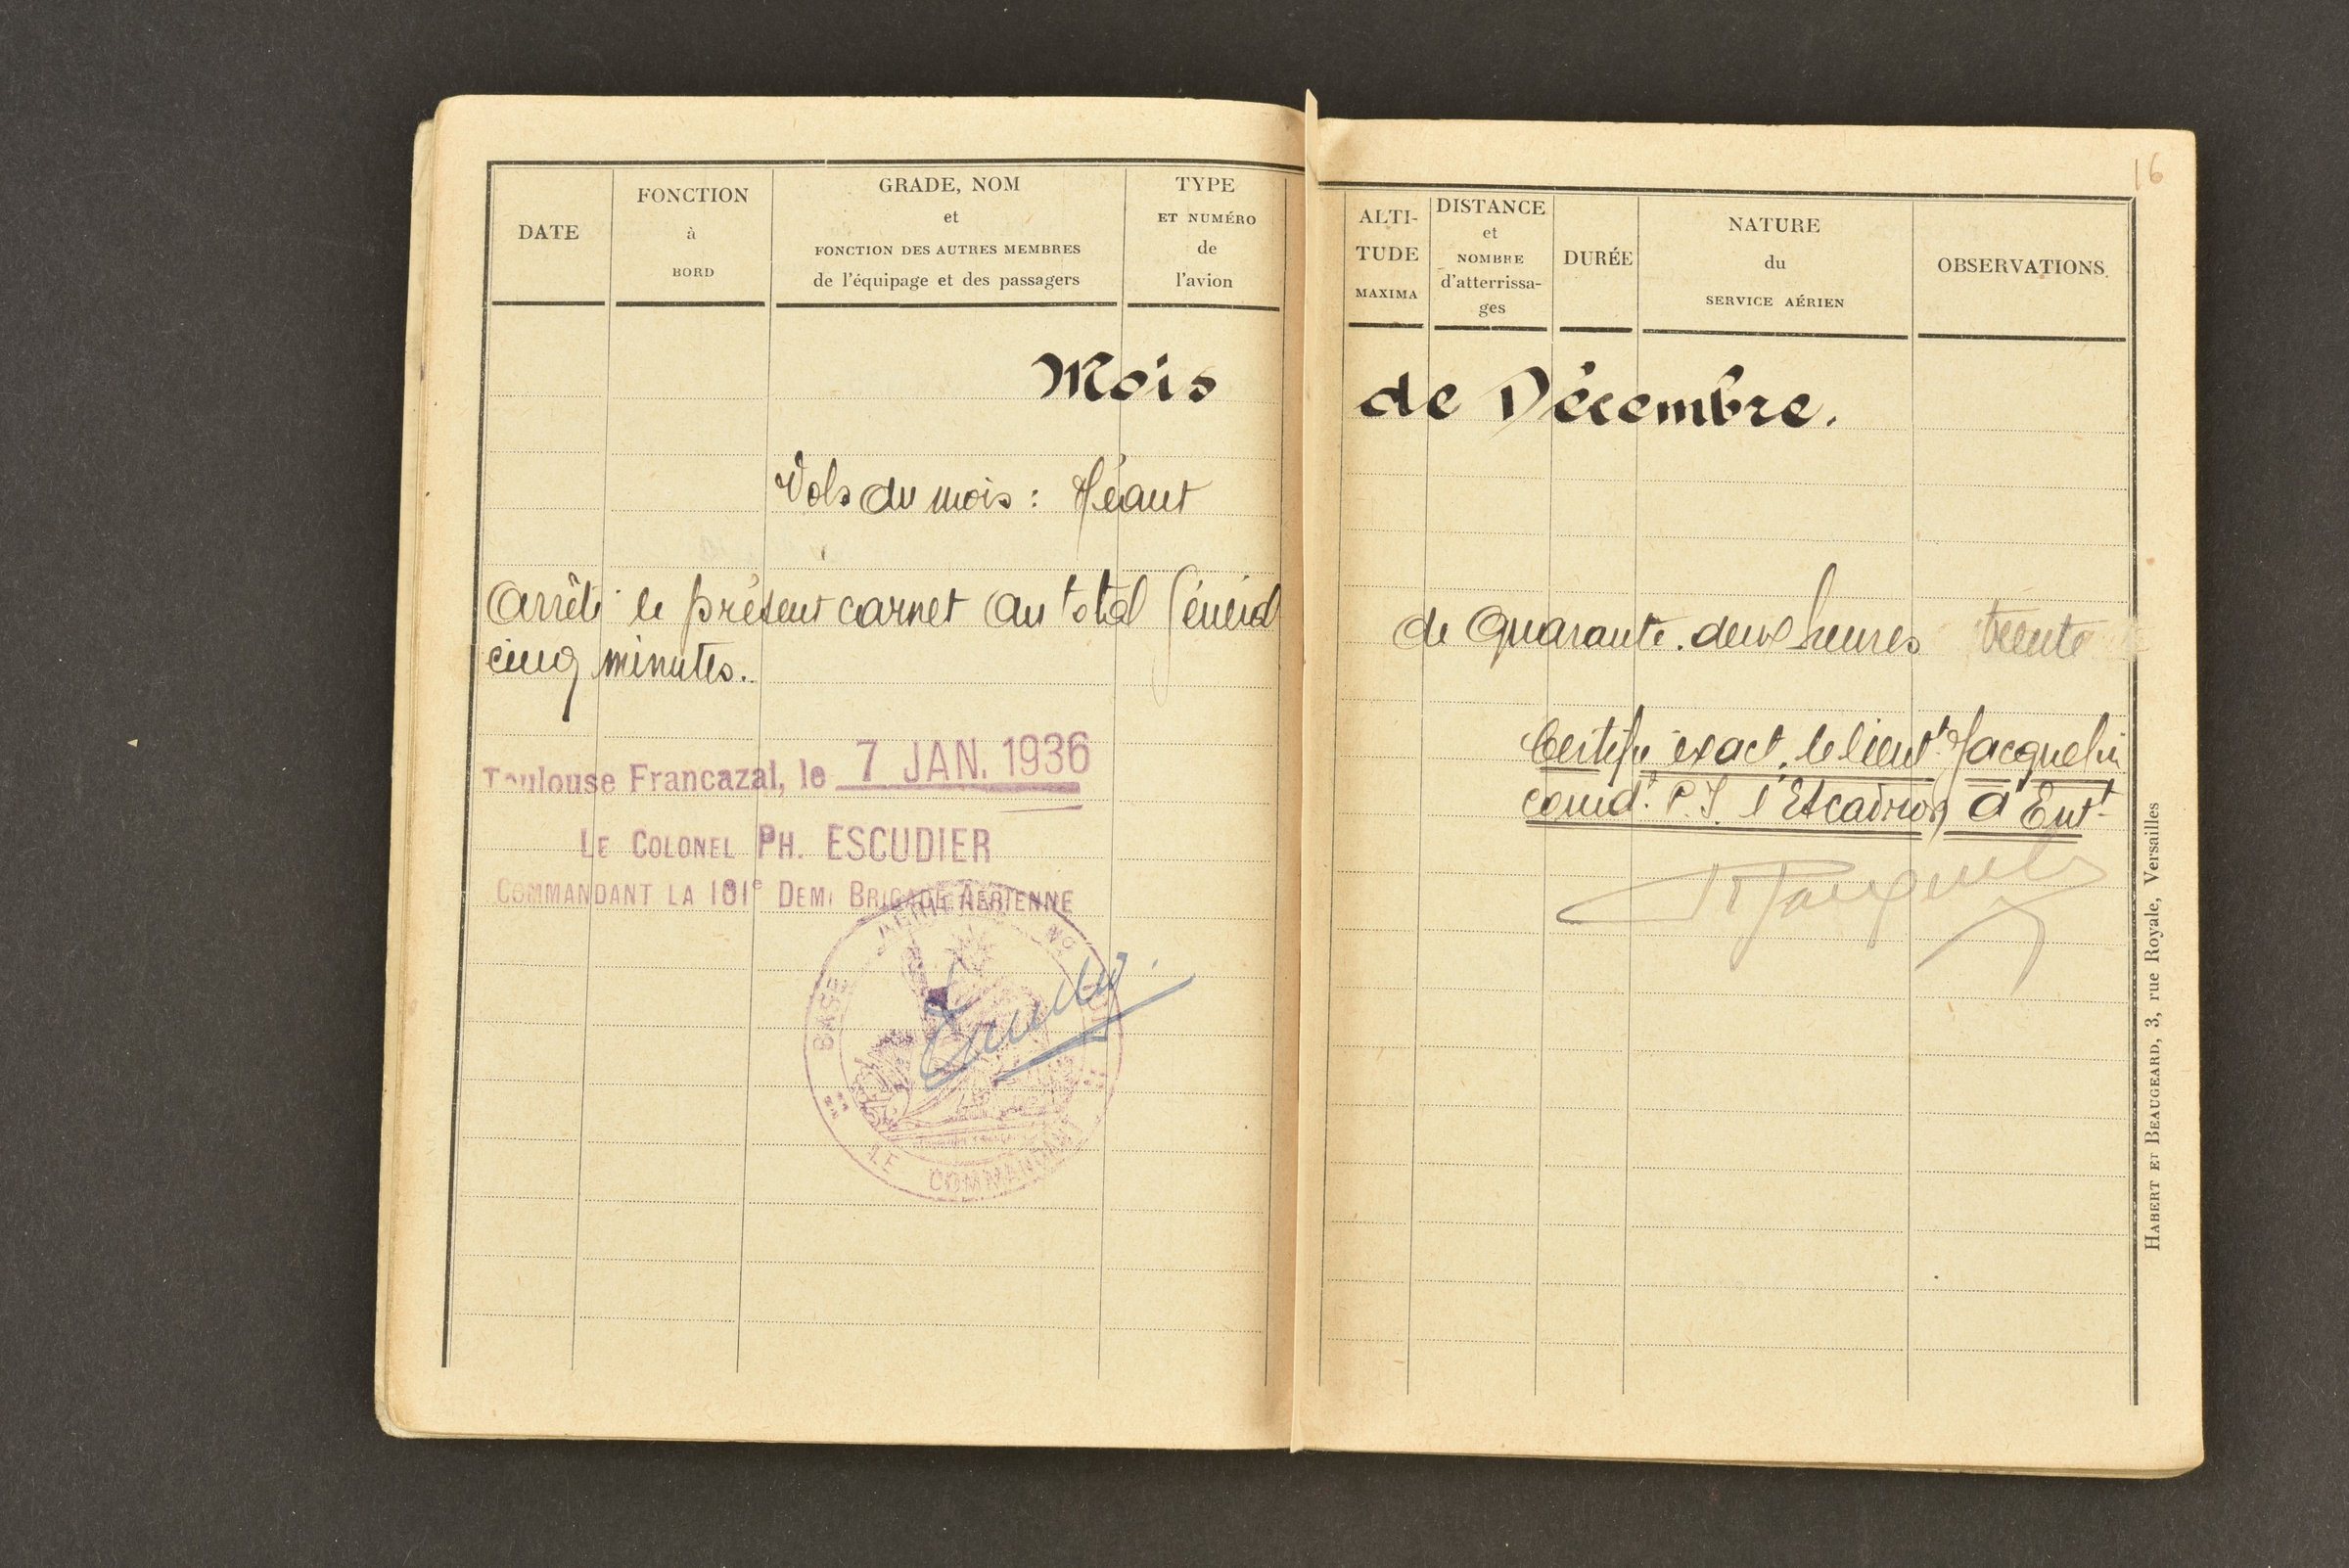 DATE
FONCTION
à
BORD
GRADE, NOM
et
FONCTION DES AUTRES MEMBRES
de l'équipage et des passagers
TYPE
ET NUMÉRO
de
l'avion
ALTI-
TUDE
MAXIMA
DISTANCE
et
NOMBRE
d'atterrissa-
ges
DURÉE
NATURE
du
SERVICE AÉRIEN
OBSERVATIONS
16
Mois de Décembre.
Vols du mois : Néant
Arrêté le présent carnet au total Général de Quarante. deux heures trente
cinq minutes.
Toulouse Francazal, le 7 JAN. 1936
LE COLONEL PH. ESCUDIER
COMMANDANT LA 101e DEMI BRIGADE AÉRIENNE
BASE AERIENNE No
LE COMMANDANT
Certifié exact, le lieutt Jacquelin
comdt P.I. l'Escadron d'Entt
HABERT ET BEAUGEARD, 3, rue Royale, Versailles